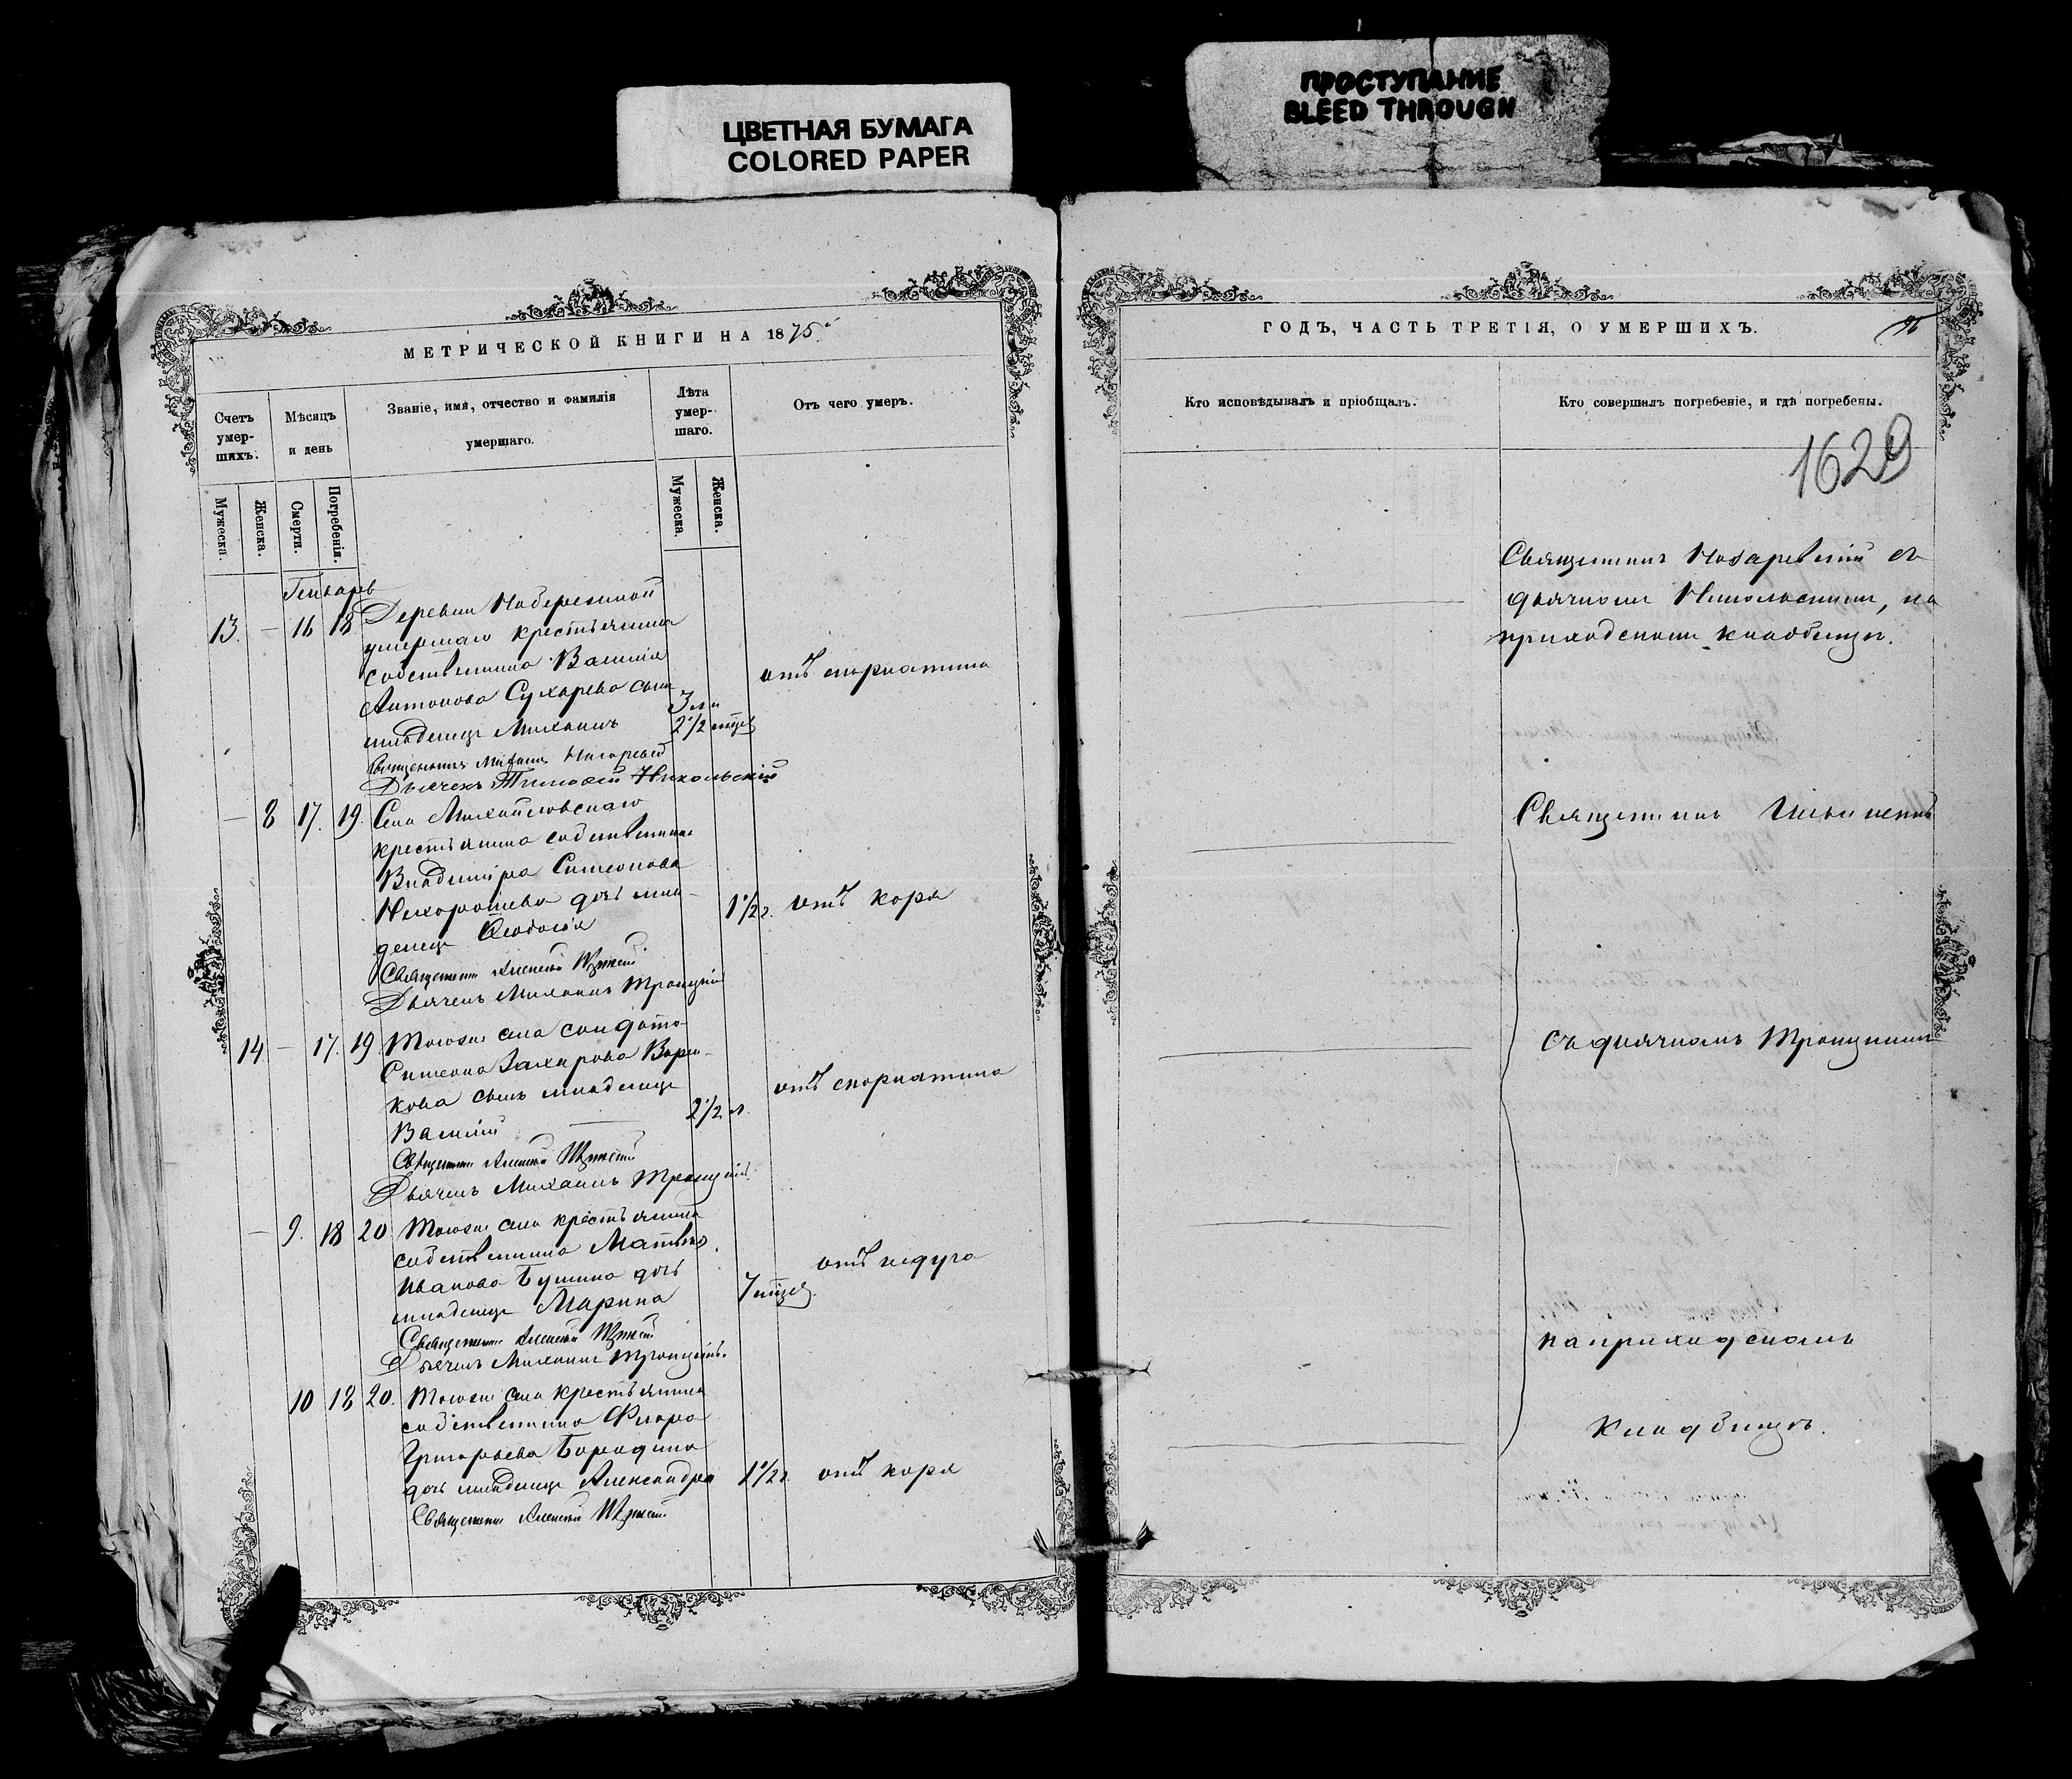 ПРОСТУПАНИЕ
BLEED THROUGH
ЦВЕТНАЯ БУМАГА
COLORED PAPER
МЕТРИЧЕСКОЙ КНИГИ НА 1875.
Счетъ умер-шихъ.
Мѣсяцъ и день
Званіе, имя, отчество и фамилія умершаго.
Лѣта умер-шаго.
Отъ чего умеръ.
Мужеска.
Женска.
Смерти.
Погребенія.
Мужеска.
Женска.
Генварь
13. — 16 18 Деревни Набережной
умершаго крестьянина
собственника Василія
Антонова Сухарева сынъ
младенецъ Михаилъ
3 л и
2 1/2 мѣсяц
отъ скарлатина
Священникъ
Дьячекъ Тимофей Никольскій
— 8 17. 19. Села Михайловскаго
крестьянина собственника
Владиміра Симеонова
Нехорошева дочь мла-
денецъ Ѳеодосія
1 1/2 г.
отъ коря
Священникъ Алексей
Дьячекъ Михаилъ Троицкій
14 — 17. 19. Тогоже села солдата
Симеона Захарова
кова сынъ младенецъ
Василій
2 1/2 л.
отъ скарлатина
Священникъ Алексей
Дьячекъ Михаилъ Троицкій.
— 9. 18 20 Тогоже села крестьянина
собственника Матвея
Иванова дочь
младенецъ Марина
7 мѣсяц.
отъ недуга
Священникъ Алексей
Дьячекъ Михаилъ Троицкій.
10 18 20. Тогоже села крестьянина
собственника Флора
Григорьева Бородина
дочь младенецъ Александра
1 1/2 г
отъ коря
Священникъ Алексей
ГОДЪ, ЧАСТЬ ТРЕТІЯ, О УМЕРШИХЪ.
Кто исповѣдывалъ и пріобщалъ.
Кто совершалъ погребеніе, и гдѣ погребены.
1629
Священникъ съ
дьячкомъ Никольскимъ, на
приходскомъ кладбищѣ.
Священникъ
съ дьячкомъ Троицкимъ
на приходскомъ
кладбищѣ.